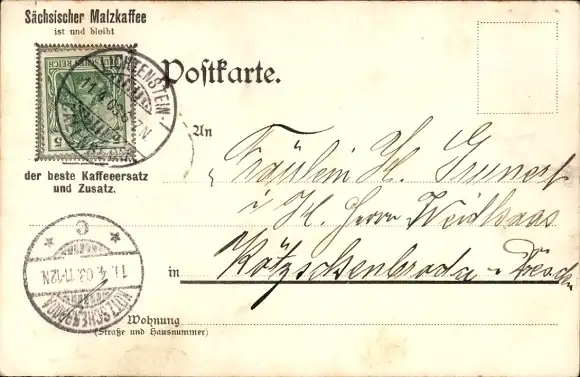 Sächsischer Malzkaffee
ist und bleibt
DEUTSCHES REICH
5
5
11 4 03
N
Postkarte.
An
Fräulein H. Grunert
der beste Kaffeeersatz
und Zusatz.
i H. Herrn Weidhaas
C
11.4.03.11-12N
KÖTZSCHENBRODA
in Kötzschenbroda - Dresden
Wohnung
(Straße und Hausnummer)